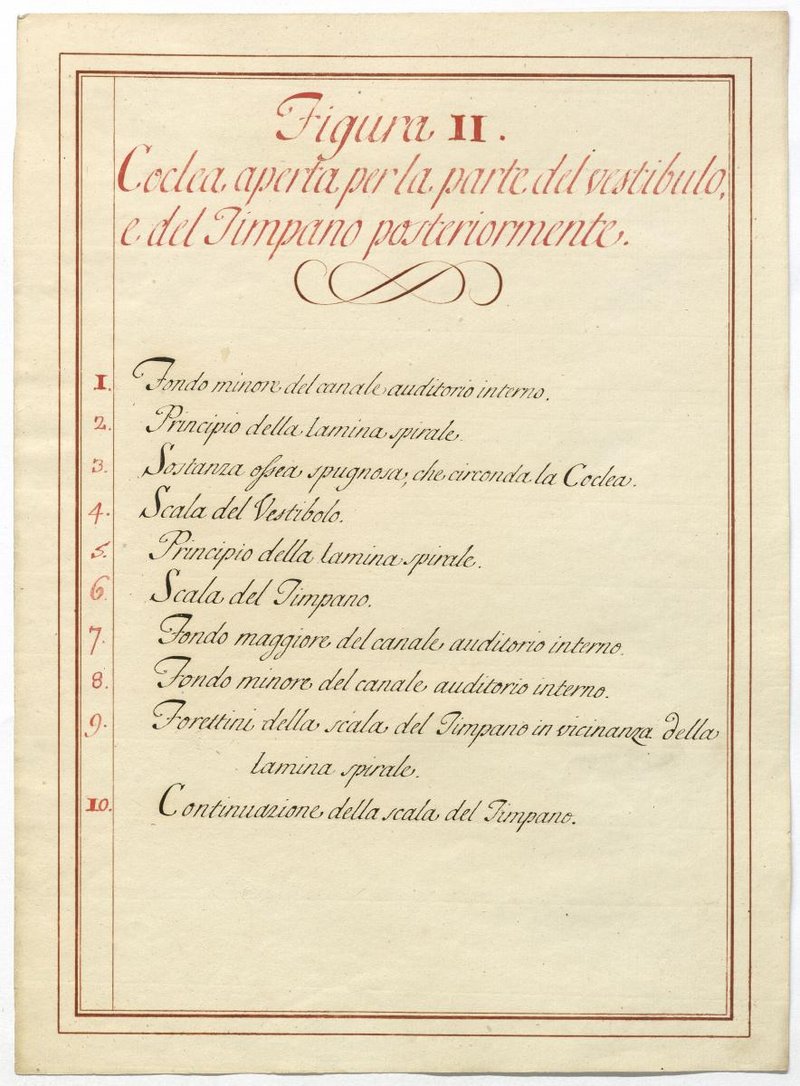 Figura II.
Coclea aperta per la parte del vestibulo,
e del Timpano posteriormente.
1. Fondo minore del canale auditorio interno.
2. Principio della lamina spirale.
3. Sostanza ossea spugnosa, che circonda la Coclea.
4. Scala del Vestibolo.
5. Principio della lamina spirale.
6. Scala del Timpano.
7. Fondo maggiore del canale auditorio interno.
8. Fondo minore del canale auditorio interno.
9. Forettini della scala del Timpano in vicinanza della
lamina spirale.
10. Continuazione della scala del Timpano.